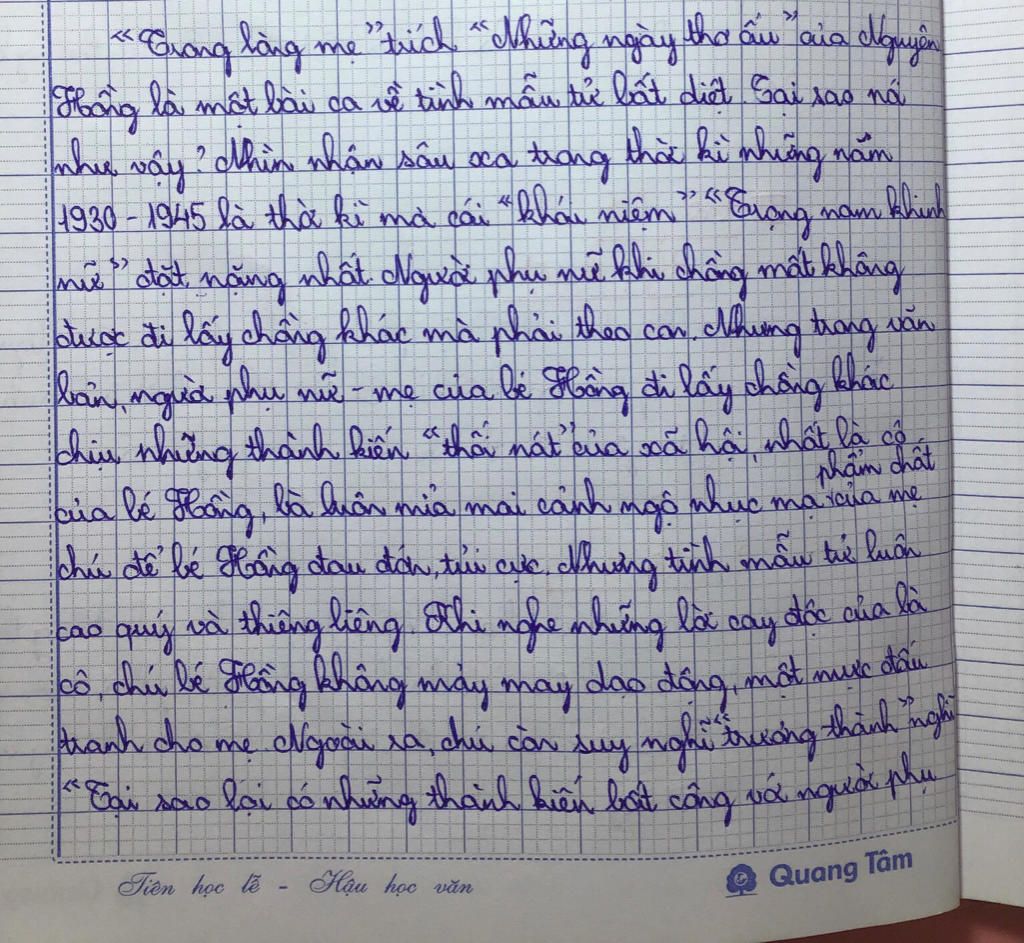 “Trong lòng mẹ” trích “Những ngày thơ ấu” của Nguyên
Hồng là một bài ca về tình mẫu tử bất diệt. Tại sao nó
như vậy? Nhìn nhận sâu xa trong thời kì những năm
1930 - 1945 là thời kì mà cái “khái niệm” “Trọng nam khinh
nữ” đặt nặng nhất. Người phụ nữ khi chồng mất không
được đi lấy chồng khác mà phải theo con. Nhưng trong văn
bản, người phụ nữ - mẹ của bé Hồng đi lấy chồng khác
chịu những thành kiến “thối nát” của xã hội, nhất là cô
của bé Hồng, bà luôn mỉa mai cảnh ngộ nhục mạ phẩm chất của mẹ
chú để bé Hồng đau đớn, tủi cực. Nhưng tình mẫu tử luôn
cao quý và thiêng liêng. Khi nghe những lời cay độc của bà
cô, chú bé Hồng không mảy may dao động, một mực đấu
tranh cho mẹ. Ngoài ra, chú còn suy nghĩ “trưởng thành” nghĩ
“Tại sao lại có những thành kiến bất công với người phụ
Tiên học lễ - Hậu học văn
Quang Tâm